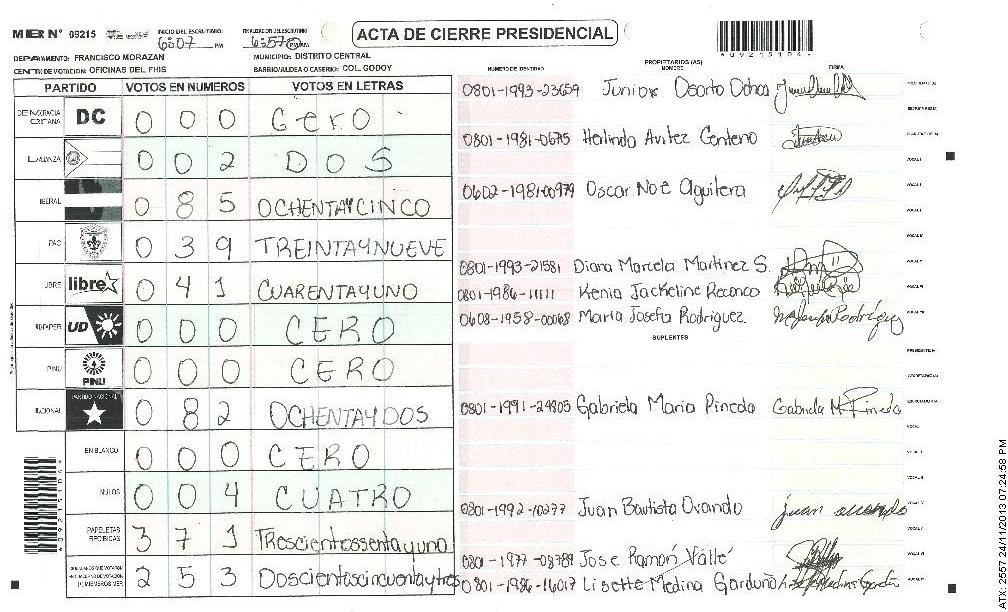 MER Nº 09215
INICIO DEL ESCRUTINIO: 6:07 PM
FINALIZACION DEL ESCRUTINIO 6:57 PM
ACTA DE CIERRE PRESIDENCIAL
DEPARTAMENTO: FRANCISCO MORAZAN
MUNICIPIO: DISTRITO CENTRAL
CENTRO DE VOTACION: OFICINAS DEL FHIS
BARRIO/ALDEA O CASERIO: COL. GODOY
PARTIDO VOTOS EN NUMEROS VOTOS EN LETRAS
DEMOCRACIA CRISTIANA DC 0 0 0 Cero
ALIANZA 0 0 2 DOS
LIBERAL 0 8 5 OCHENTAYCINCO
PAC 0 3 9 TREINTAYNUEVE
LIBRE libre 0 4 1 CUARENTAYUNO
UD 0 0 0 CERO
PINU PINU 0 0 0 CERO
NACIONAL PARTIDO NACIONAL 0 8 2 OCHENTAYDOS
EN BLANCO 0 0 0 CERO
NULOS 0 0 4 CUATRO
PAPELETAS RECIBIDAS 3 7 1
CIUDADANOS QUE VOTARON 2 5 3 Doscientoscincuentaytres
*09215104*
NUMERO DE IDENTIDAD
PROPIETARIOS (AS)
NOMBRE
FIRMA
0801-1993-23659 Junior Osorto Ochoa
0801-1981-0675 Herlindo Avilez Centeno
0602-1981-00979 Oscar Noe Aguilera
0801-1993-21581 Diana Marcela Martinez S.
0801-1986-11111 Kenia Jackeline Reconco
0608-1958-00068 Maria Josefa Rodriguez
SUPLENTES
0801-1991-24805 Gabriela Maria Pineda Gabriela M. Pineda
0801-1992-10277 Juan Bautista Ovando juan ovando
0801-1977-08789 Jose Ramón Valle
0801-1986-16017 Lisette Medina Garduño
*09215104*
ATX-2557 24/11/2013 07:24:58 PM